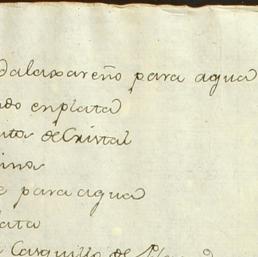 dalaxareño para agua
ado enplata
uta de Cristal
ina
e para agua
lata
Casquillo de